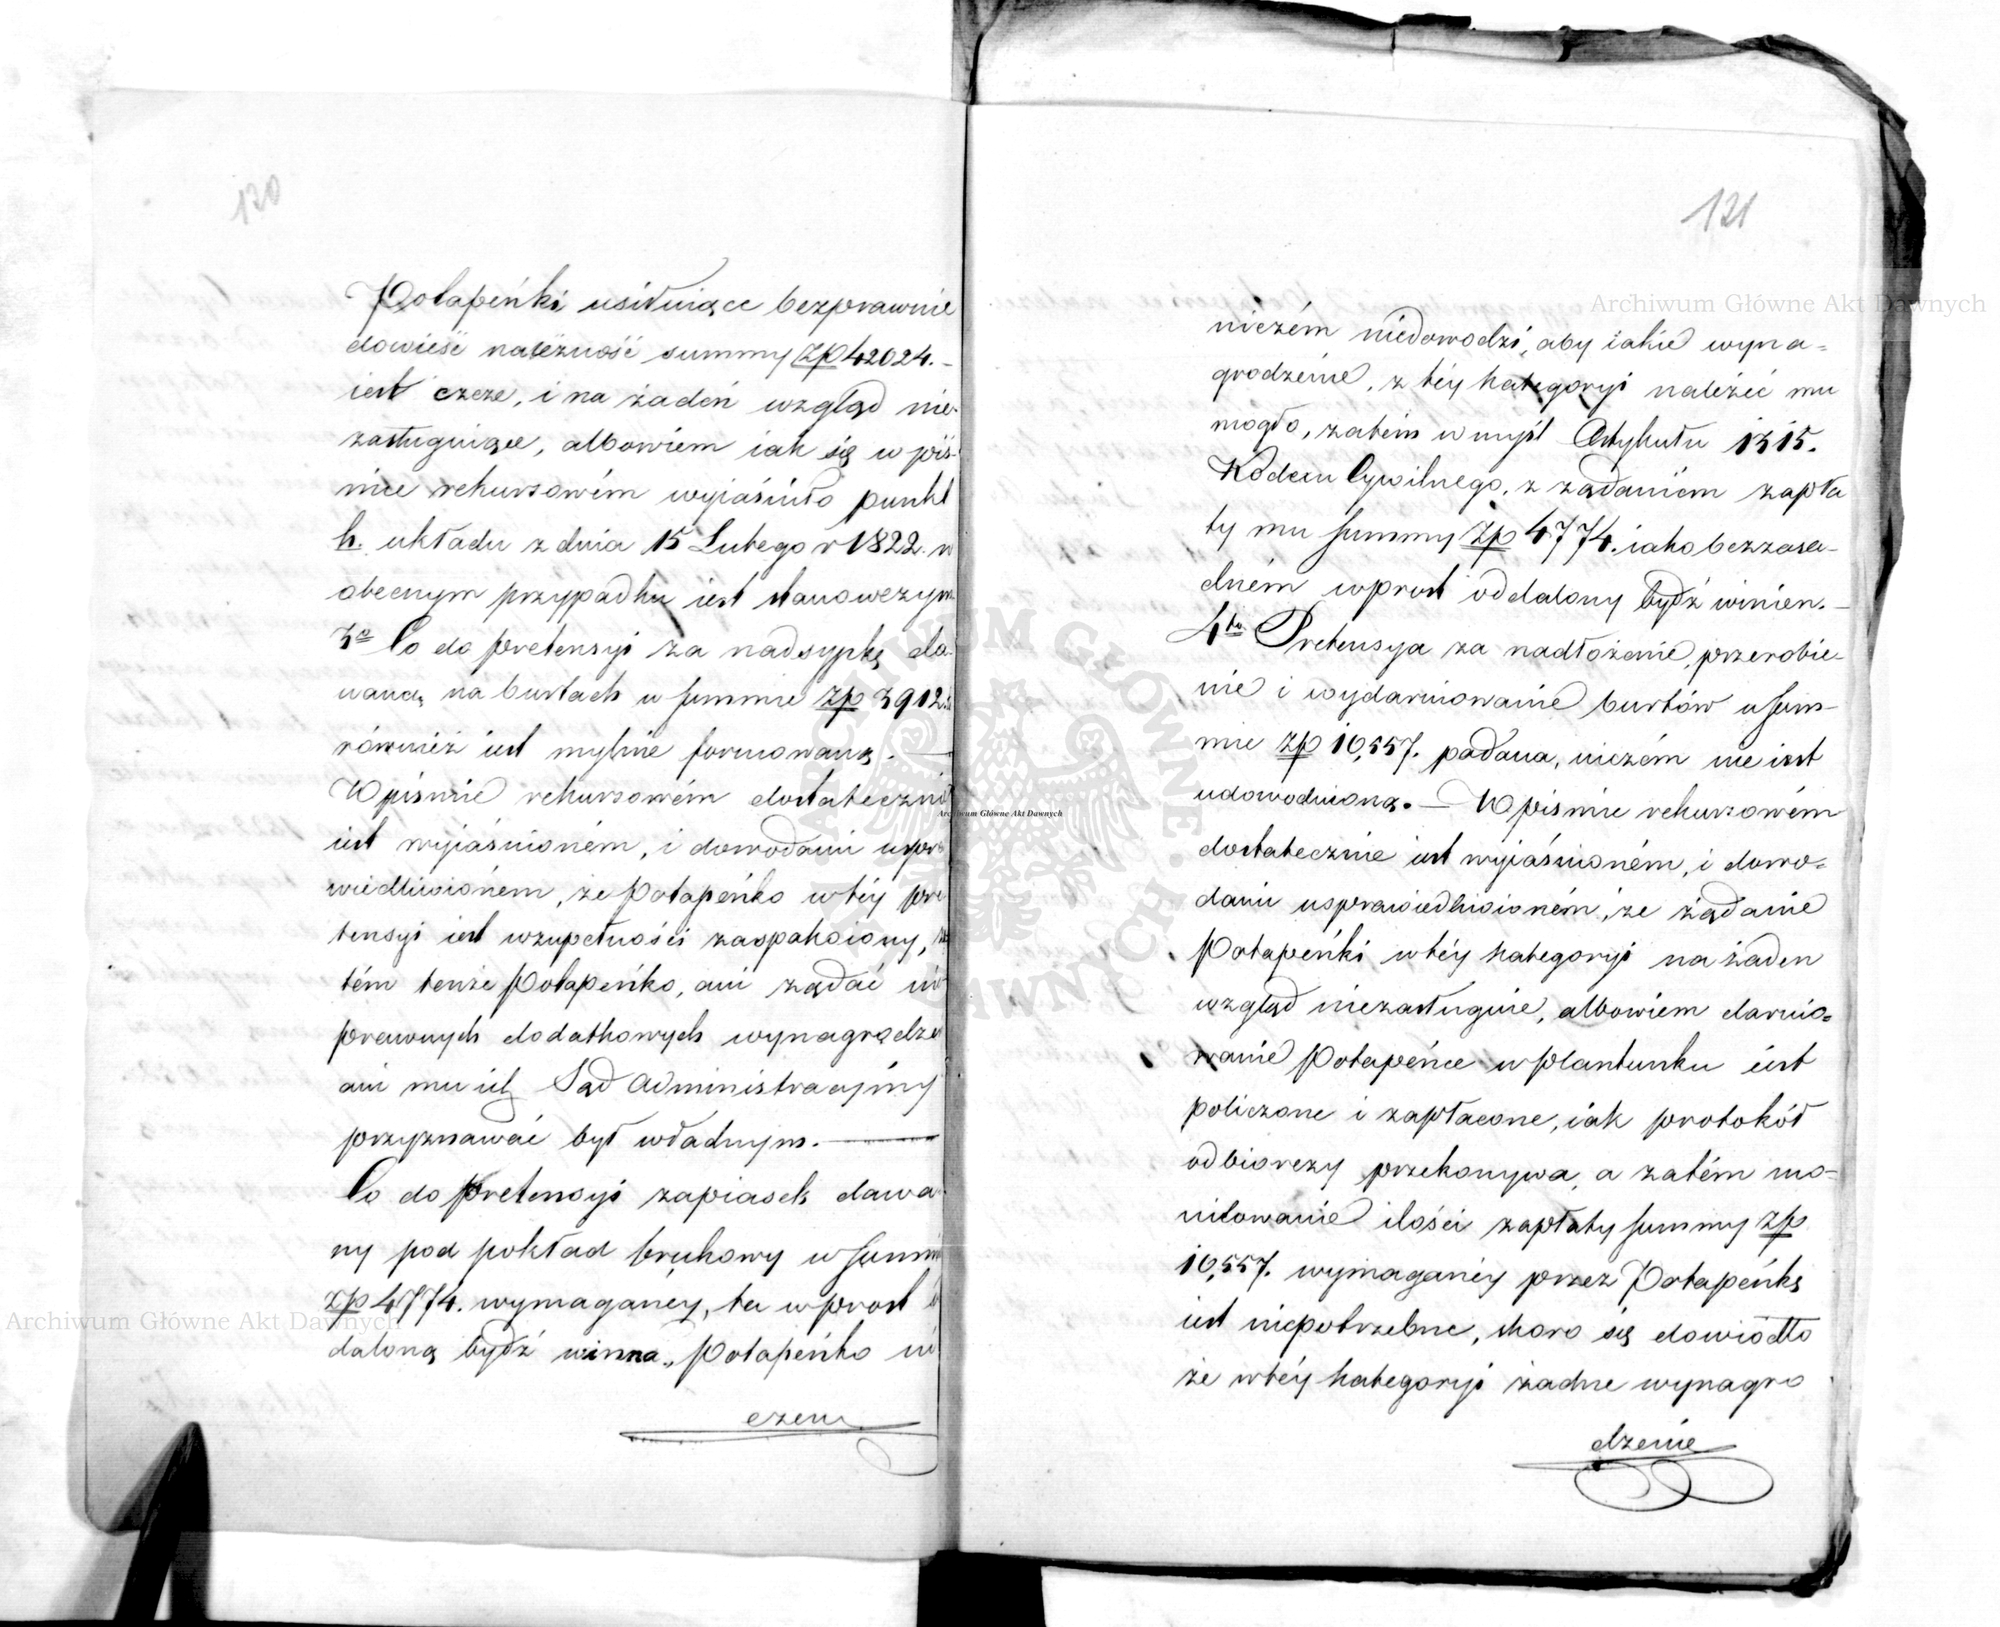 120
Potapeńki usiłuiące bezprawnie
dowieść należność summy zp 42024. –
iest czcze, i na żaden wzgląd nie-
zasługuiące, albowiem iak się w piś-
mie rekursowém wyiaśniło punkt
h. układu z dnia 15 Lutego r 1822. w
obecnym przypadku iest stanowczym
3o Co do pretensyi za nadsypkę da-
waną na burtach w summie zp 3912.
również iest mylnie formowaną. —
W piśmie rekursowém dostatecznie
iest wyiaśnioném, i dowodami uspra
wiedliwioném, że Potapeńko w téy pre
tensyi iest wzupełności zaspokoiony, za
tém tenże Potapeńko, ani żądać nie
prawnych dodatkowych wynagrodze
ani mu ich Sąd Administracyiny
przyznawać był władnym. —
Co do pretensyi za piasek dawa-
ny pod pokład brukowy w summie
zp 4774. wymaganéy, ta wprost
daloną bydź winna, Potapeńko ni
czem
121
niczém niedowodzi, aby iakie wyna=
grodzenie, z téy kategoryi należéć mu
mogło, zatém w myśl Artykułu 1315.
Kodexu Cywilnego, z żądaniem zapła
ty mu summy zp 4774. iako bezzasa-
dném wprost oddalony bydź winien. —
4to Pretensya za nadłożenie, przerobie-
nie i wydarniowanie burtów w sum-
mie zp 10,557. podana, niczém nie iest
udowodnioną. — W piśmie rekursowém
dostatecznie iest wyiaśnioném, i dowo=
dami usprawiedliwioném, że żądanie
Potapeńki w téy kategoryi na żaden
wzgląd niezasługuie, albowiem darnio=
wanie Potapeńce w plantunku iest
policzone i zapłacone, iak protokół
odbiorczy przekonywa, a zatém mo-
nitowanie ilości zapłaty summy zp
10,557. wymaganéy przez Potapeńkę
iest niepotrzebne, skoro się dowiodło
że w téy kategoryi żadne wynagro
dzenie
Archiwum Główne Akt Dawnych
Archiwum Główne Akt Dawnych
Archiwum Główne Akt Dawnych
ARCHIWUM GŁÓWNE AKT DAWNYCH